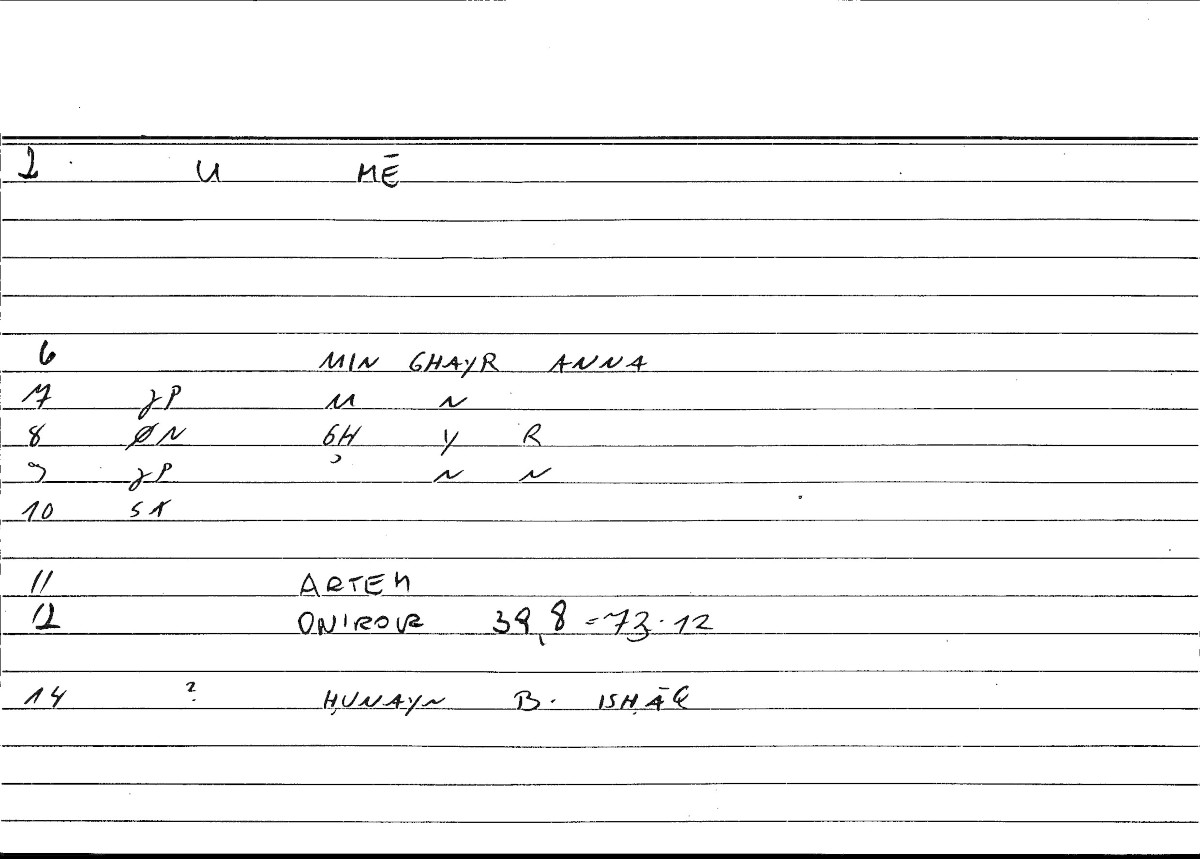 2 U MĒ
6 MIN GHAYR ANNA
7 JP M N
8 ØN GH Y R
9 JP ʾ N N
10 SK
11 ARTEM
12 ONIROCR 39,8 = 73.12
14 ? ḤUNAYN B. ISḤĀQ